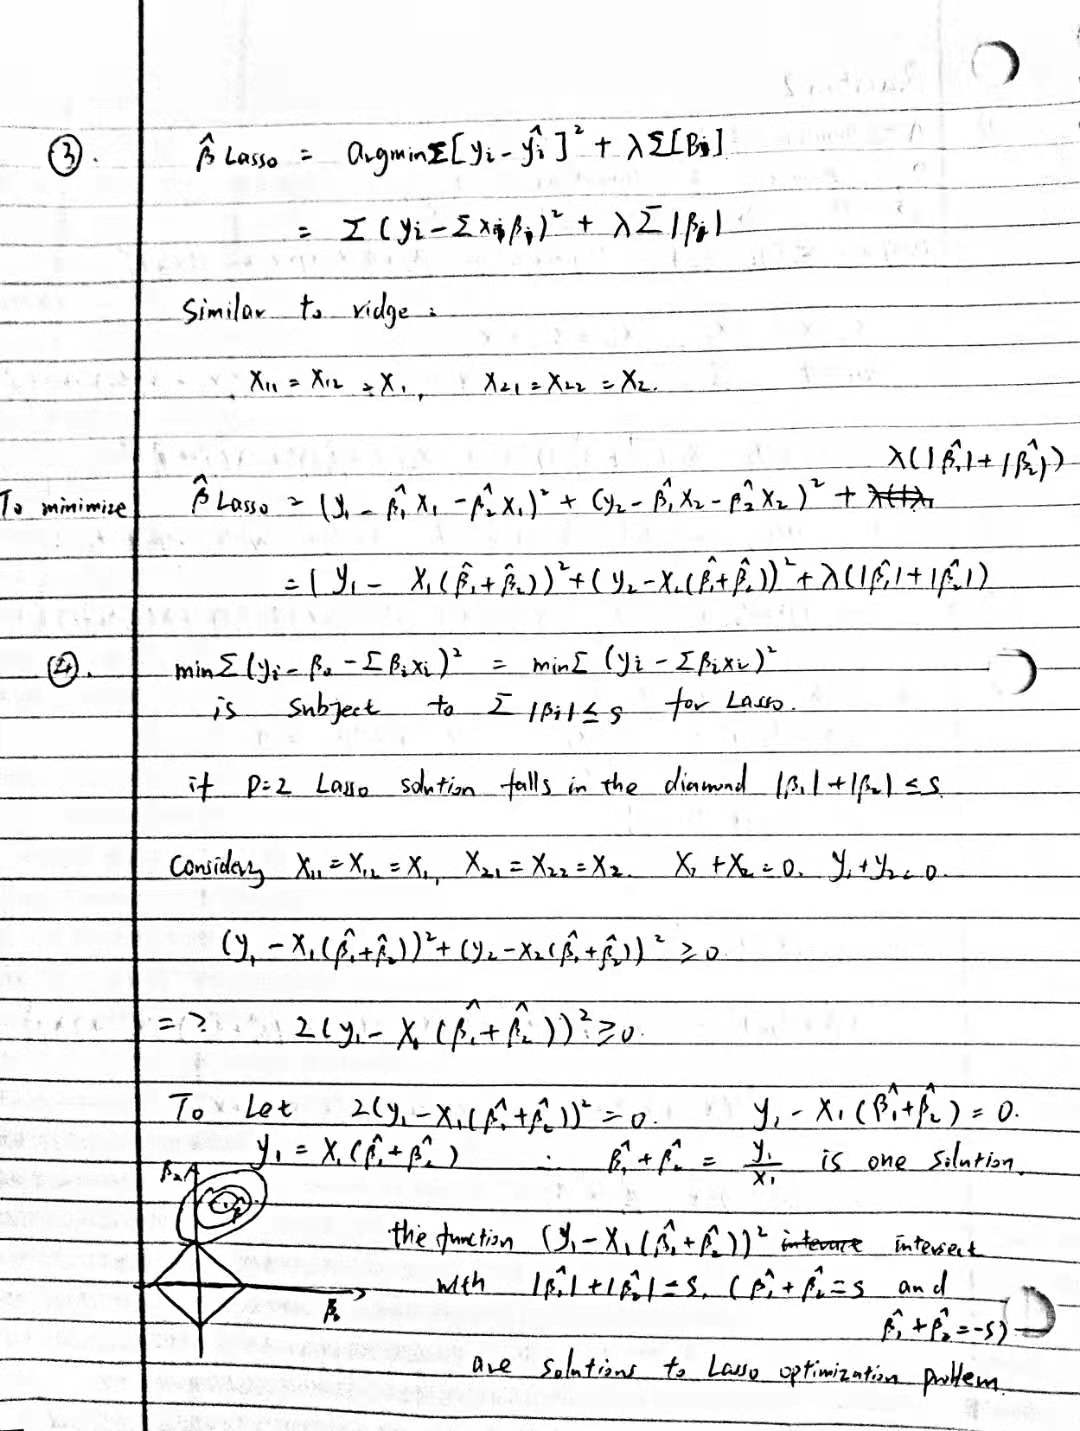 ③. β̂ Lasso = argminΣ[yi - ŷi]² + λΣ[Bj]
= Σ(yi - Σxijβj)² + λΣ|βj|
Similar to ridge:
X11 = X12 = X1, X21 = X22 = X2.
λ(|β̂1| + |β̂2|)
To minimize β̂ Lasso = (y1 - β̂1X1 - β̂2X1)² + (y2 - β̂1X2 - β̂2X2)² +
= (y1 - X1(β̂1+β̂2))² + (y2 - X2(β̂1+β̂2))² + λ(|β̂1| + |β̂2|)
④. minΣ(yi - β0 - Σβixi)² = minΣ(yi - Σβixi)²
is subject to Σ|βi| ≤ s for Lasso.
if p=2 Lasso solution falls in the diamond |β1| + |β2| ≤ s
Considering X11 = X12 = X1, X21 = X22 = X2. X1 + X2 = 0. y1 + y2 = 0.
(y1 - X1(β̂1+β̂2))² + (y2 - X2(β̂1+β̂2))² ≥ 0
=> 2(y1 - X1(β̂1+β̂2))² ≥ 0.
To Let 2(y1 - X1(β̂1+β̂2))² = 0. y1 - X1(β̂1+β̂2) = 0.
y1 = X1(β̂1+β̂2) ∴ β̂1+β̂2 = y1/x1 is one solution.
β2
the function (y1 - X1(β̂1+β̂2))² intersect
with |β̂1| + |β̂2| = s. (β̂1+β̂2 = s and
β̂1+β̂2 = -s)
are solutions to Lasso optimization problem.